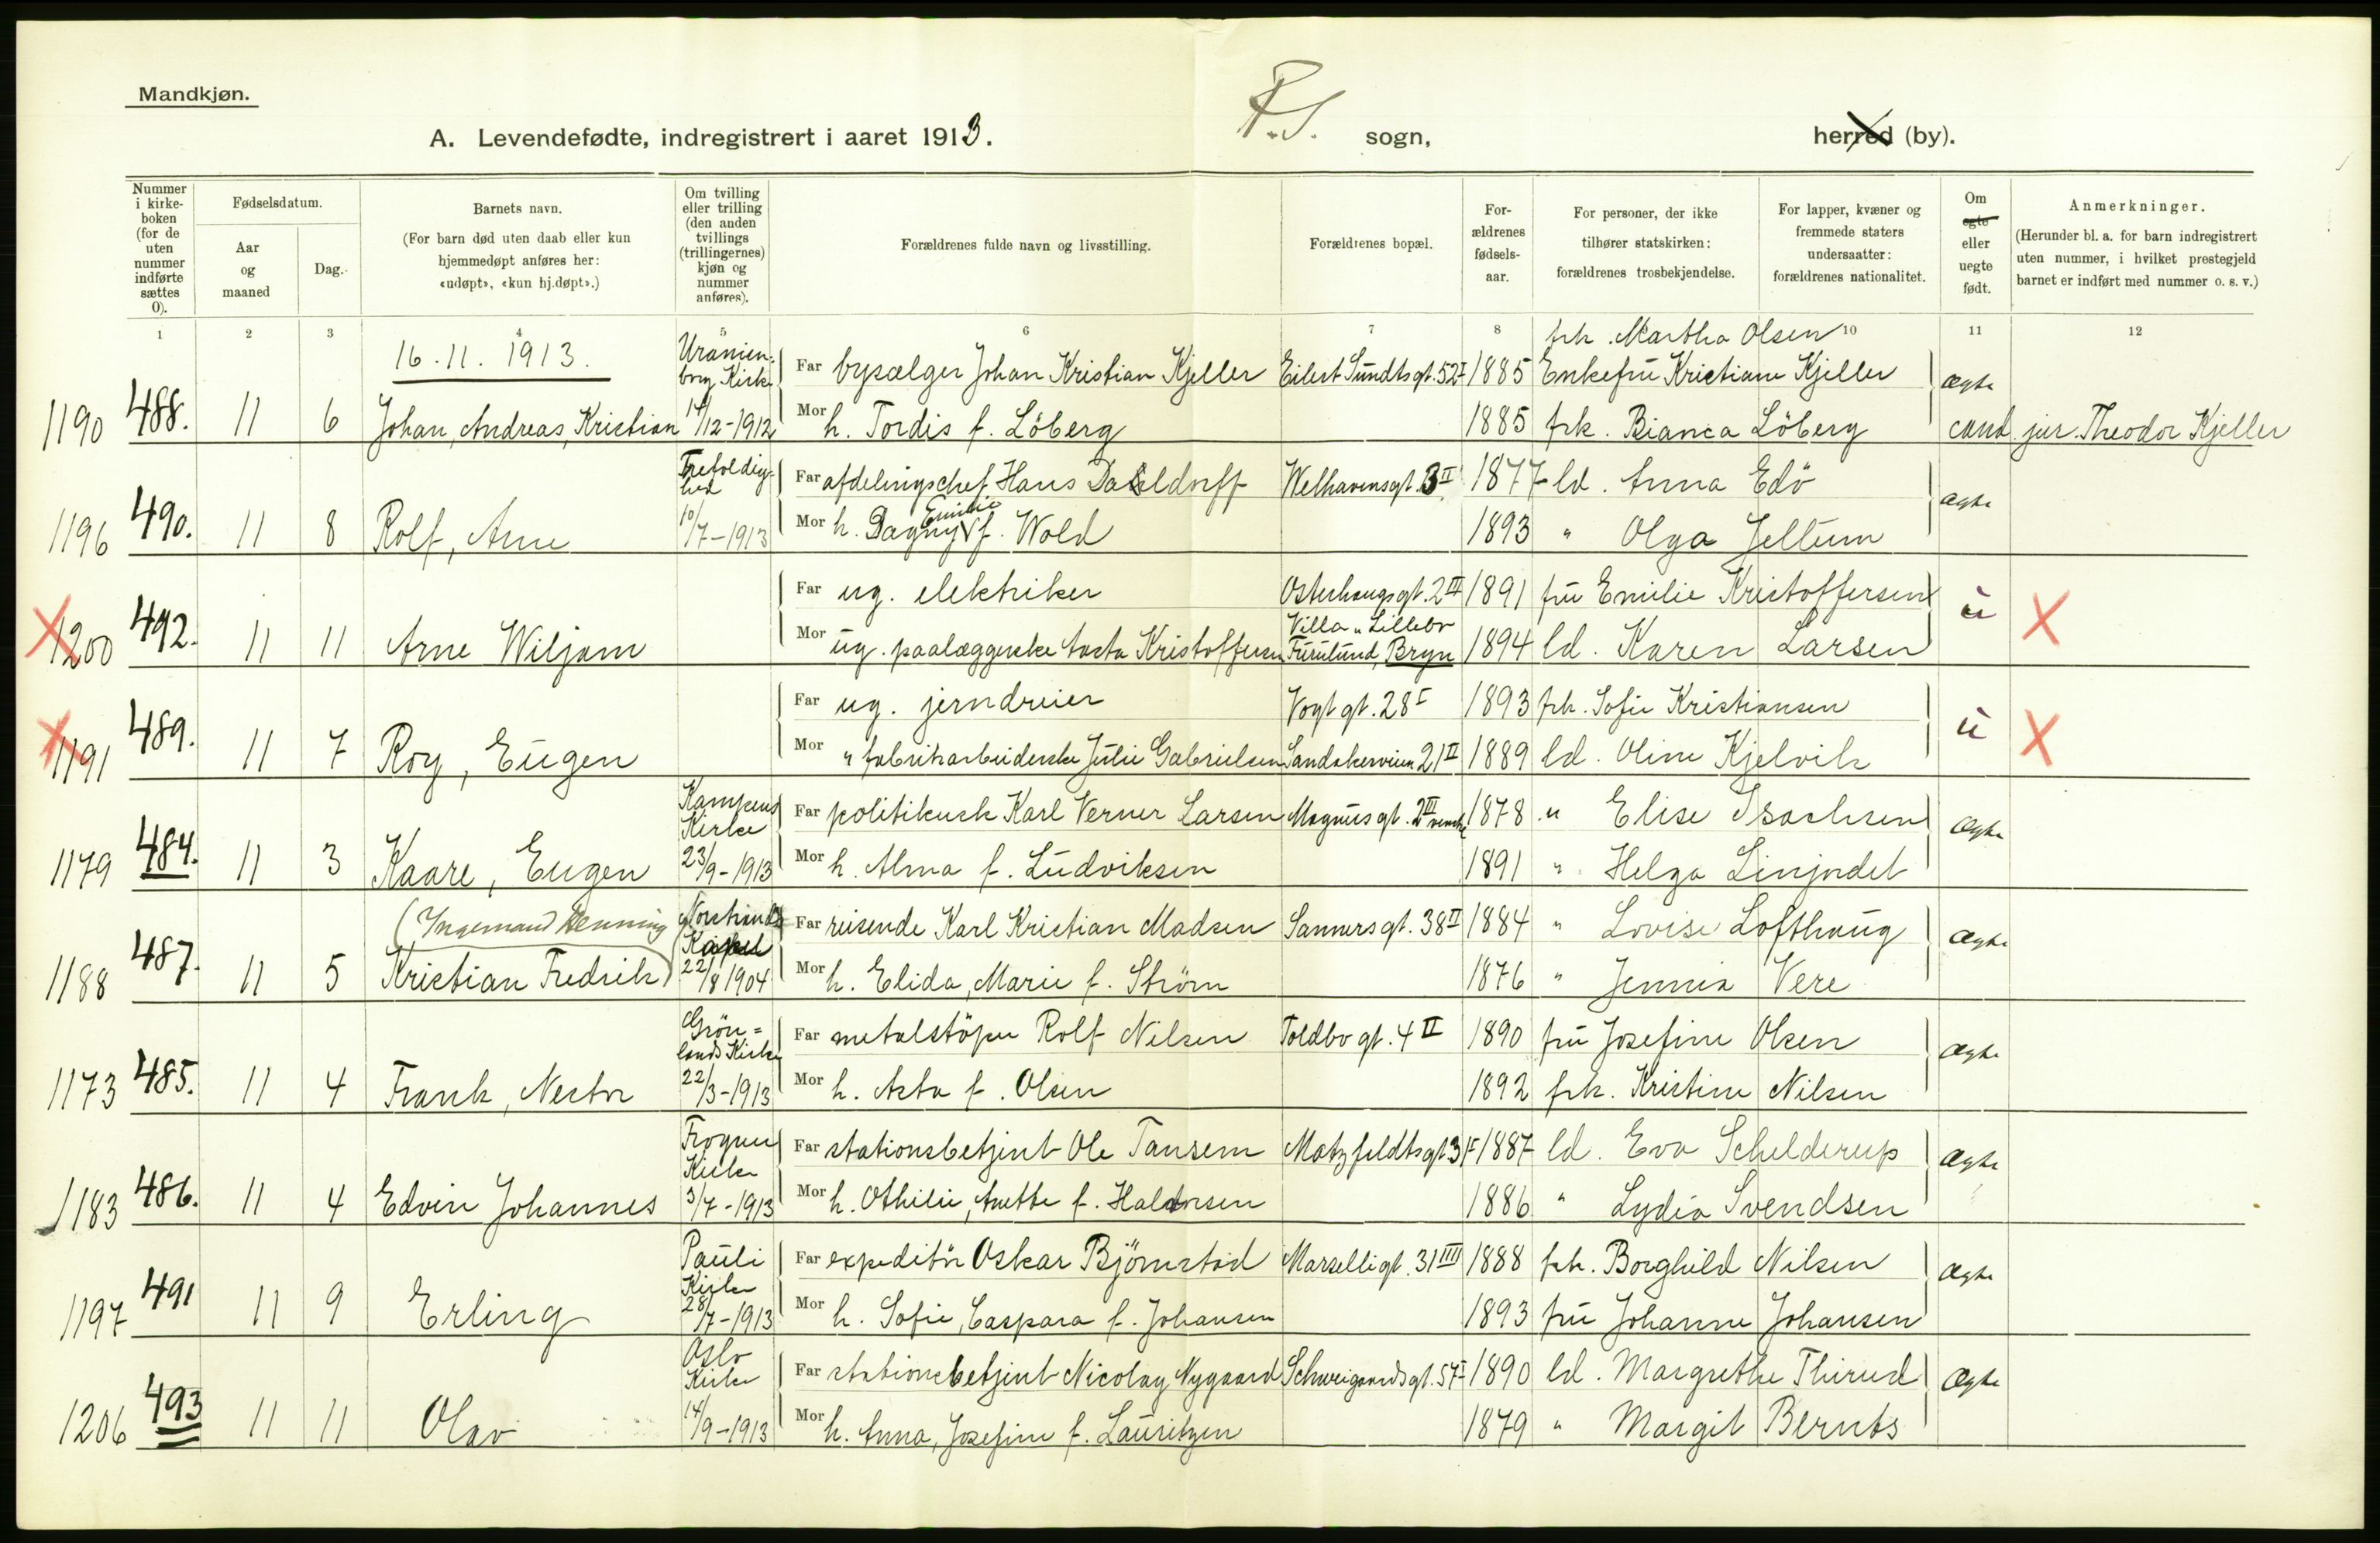 Mandkjøn.
R.S.
A. Levendefødte, indregistrert i aaret 1913. sogn, herred (by).
Nummer i kirke-boken (for de uten nummer indførte sættes 0).
Fødselsdatum.
Aar og maaned
Dag.
Barnets navn.
(For barn død uten daab eller kun hjemmedøpt anføres her: «udøpt», «kun hj.døpt».)
Om tvilling eller trilling (den anden tvillings (trillingernes) kjøn og nummer anføres).
Forældrenes fulde navn og livsstilling.
Forældrenes bopæl.
For-ældrenes fødsels-aar.
For personer, der ikke tilhører statskirken: forældrenes trosbekjendelse.
For lapper, kvæner og fremmede staters undersaatter: forældrenes nationalitet.
Om egte eller uegte født.
Anmerkninger.
(Herunder bl. a. for barn indregistrert uten nummer, i hvilket prestegjeld barnet er indført med nummer o. s. v.)
1 2 3 4 5 6 7 8 10 11 12
16.11.1913. Uranienborg Kirke frk. Martha Olsen
Far bysælger Johan Kristian Kjeller Eilert Sundtsgt. 52 I 1885 Enkefru Kristiane Kjeller ægte
1190 488. 11 6 Johan, Andreas, Kristian 14/12-1912 Mor h. Tordis f. Löberg 1885 frk. Bianca Löberg cand. jur. Theodor Kjeller
Trefoldighed Far afdelingschef Hans Daeldorff Welhavensgt. 3 II 1877 ld. Anna Edö ægte
1196 490. 11 8 Rolf, Arne 10/7-1913 Mor h. Dagny Emilie f. Wold 1893 " Olga Jellum
Far ug. elektriker Osterhausgt. 2 II 1891 fru Emilie Kristoffersen u X
X 1200 492. 11 11 Arne Wiljam Mor ug. paalæggerske Aasta Kristoffersen Villa "Lillebo Furulund, Bryn 1894 ld. Karen Larsen
Far ug. jerndreier Vogtgt. 28 I 1893 frk. Sofie Kristiansen u X
X 1191 489. 11 7 Roy, Eugen Mor " fabrikarbeiderske Julie Gabrielsen Sandakerveien 21 II 1889 ld. Oline Kjelvik
Kampens Kirke Far politikusk Karl Verner Larsen Magnusgt. 2 III 1878 " Elise Isachsen ægte
1179 484. 11 3 Kaare, Eugen 23/9-1913 Mor h. Alma f. Ludviksen 1891 " Helga Linjordet
(Ingemand Henning Far reisende Karl Kristian Madsen Sannersgt. 38 II 1884 " Lovise Lofthaug ægte
1188 487. 11 5 Kristian Fredrik) 22/8 1904 Mor h. Elida, Marie f. Ström 1876 " Jennia Vere
Grön=lands Kirke Far metalstöper Rolf Nilsen Toldbogt. 4 II 1890 fru Josefine Olsen ægte
1173 485. 11 4 Frank, Nestor 22/3-1913 Mor h. Asta f. Olsen 1892 frk. Kristine Nilsen
Frogner Kirke Far stationsbetjent Ole Tansem Motzfeldtsgt 3 I 1887 ld. Eva Schelderup ægte
1183 486. 11 4 Edvin Johannes 3/7-1913 Mor h. Othilie, Anette f. Haldorsen 1886 " Lydia Svendsen
Pauli Kirke Far expeditör Oskar Björnstad Marselligt. 31 IIII 1888 frk. Borghild Nilsen ægte
1197 491 11 9 Erling 28/7-1913 Mor h. Sofie, Caspara f. Johansen 1893 fru Johanne Johansen
Oslo Kirke Far stationsbetjent Nicolay Nygaard Schweigaardsgt. 57 I 1890 ld. Margrethe Thirud ægte
1206 493 11 11 Olav 14/9-1913 Mor h. Anna, Josefine f. Lauritzen 1879 " Margit Bernts